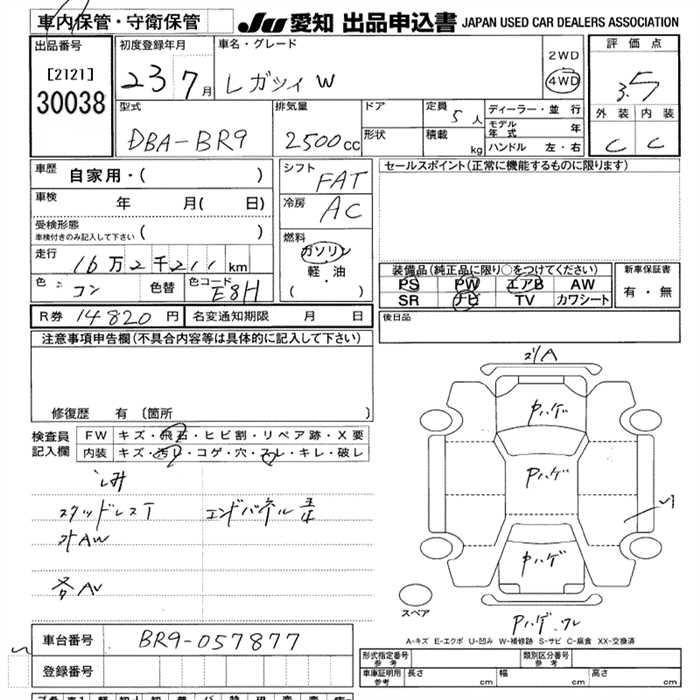 車内保管・守衛保管 JU 愛知 出品申込書 JAPAN USED CAR DEALERS ASSOCIATION
出品番号
[2121]
30038
初度登録年月
23 7月
車名・グレード
レガツィ W
2WD
4WD
評価点
3.5
外装 内装
C C
型式
DBA-BR9
排気量
2500cc
ドア
形状
定員
5人
積載
kg
ディーラー・並行
モデル年式 年
ハンドル 左・右
車歴
自家用・( )
車検
年 月( 日)
受検形態
車検付きのみ記入して下さい ( )
走行
16万2千211km
色:
コン
色替
色コード
E8H
シフト
FAT
冷房
AC
燃料
ガソリン
・
軽・油
( )
セールスポイント(正常に機能するものに限ります)
装備品(純正品に限り○をつけてください)
PS PW エアB AW
SR ナビ TV カワシート
新車保証書
有・無
R券 14820円 名変通知期限 月 日
後日品
注意事項申告欄(不具合内容等は具体的に記入して下さい)
修復歴 有〔箇所 〕
検査員
記入欄
FW キズ・飛石・ヒビ割・リペア跡・X要
内装 キズ・汚レ・コゲ・穴・スレ・キレ・破レ
シミ
スタッドレスT エンドパネル
社AW
AW
A
Pハゲ
Pハゲ
Pハゲ
Pハゲ・ワレ
スペア
A-キズ E-エクボ U-凹み W-補修跡 S-サビ C-腐食 XX-交換済
車台番号 BR9-057877
登録番号
形式指定番号
参考
類別区分番号
参考
車庫証明用
参考
長さ cm 幅 cm 高さ cm